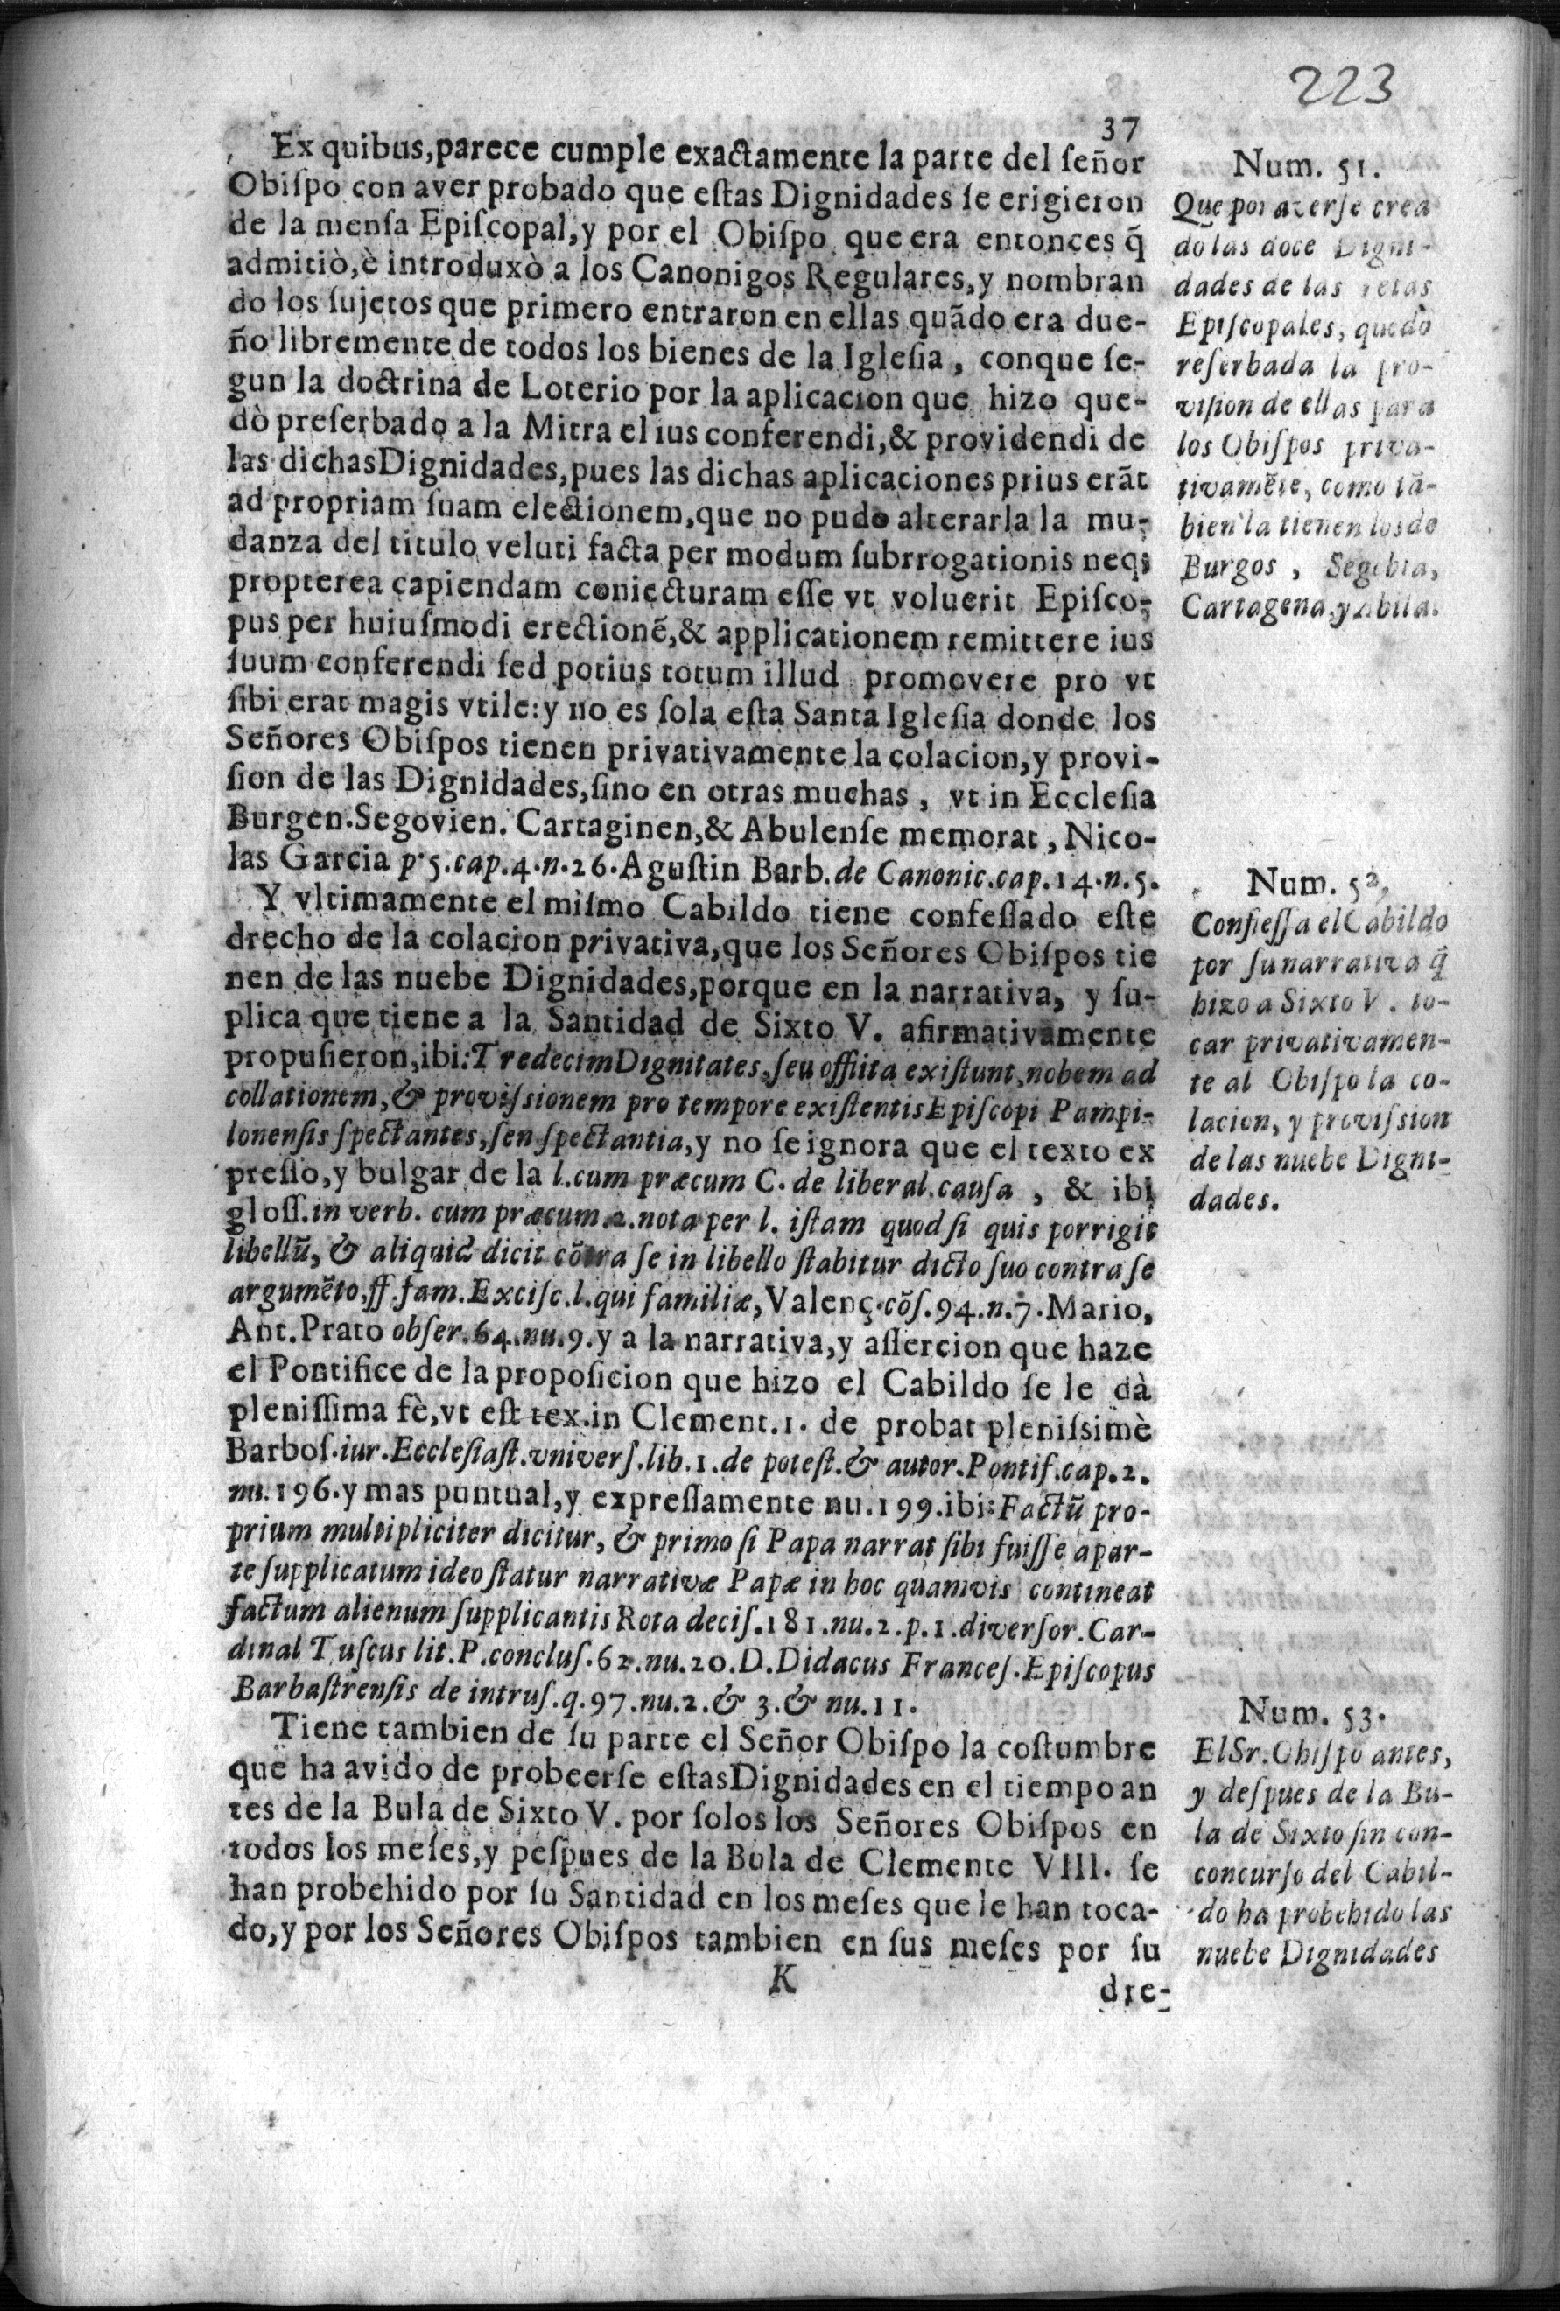 223
37
Ex quibus, parece cumple exactamente la parte del ſeñor
Obiſpo con aver probado que eſtas Dignidades ſe erigieron
de la menſa Epiſcopal, y por el Obiſpo que era entonces q̃
admitiò, è introduxò a los Canonigos Regulares, y nombran
do los ſujetos que primero entraron en ellas quãdo era due-
ño libremente de todos los bienes de la Igleſia, conque ſe-
gun la doctrina de Loterio por la aplicacion que hizo que-
dò preſerbado a la Mitra el ius conferendi, & providendi de
las dichas Dignidades, pues las dichas aplicaciones prius erãt
ad propriam ſuam electionem, que no pudo alterarla la mu-
danza del titulo veluti facta per modum ſubrrogationis neq;
propterea capiendam coniecturam eſſe vt voluerit Epiſco-
pus per huiuſmodi erectionẽ, & applicationem remittere ius
ſuum conferendi ſed potius totum illud promovere pro vt
ſibi erat magis vtile: y no es ſola eſta Santa Igleſia donde los
Señores Obiſpos tienen privativamente la colacion, y provi-
ſion de las Dignidades, ſino en otras muchas, vt in Eccleſia
Burgen. Segovien. Cartaginen, & Abulenſe memorat, Nico-
las Garcia p. 5. cap. 4. n. 26. Aguſtin Barb. de Canonic. cap. 14. n. 5.
Y vltimamente el miſmo Cabildo tiene confeſſado eſte
drecho de la colacion privativa, que los Señores Obiſpos tie
nen de las nuebe Dignidades, porque en la narrativa, y ſu-
plica que tiene a la Santidad de Sixto V. afirmativamente
propuſieron, ibi: Tredecim Dignitates, ſeu offiita exiſtunt, nobem ad
collationem, & proviſsionem pro tempore exiſtentis Epiſcopi Pampi-
lonenſis ſpectantes, ſen ſpectantia, y no ſe ignora que el texto ex
preſſo, y bulgar de la l. cum præcum C. de liberal. cauſa, & ibi
gloſſ. in verb. cum præcum. 2. nota per l. iſtam quod ſi quis porrigit
libellũ, & aliquid dicit cõtra ſe in libello ſtabitur dicto ſuo contra ſe
argumẽto, ff. fam. Exciſc. l. qui familiæ, Valenç. cõſ. 94. n. 7. Mario,
Ant. Prato obſer. 64. nu. 9. y a la narrativa, y aſſercion que haze
el Pontifice de la propoſicion que hizo el Cabildo ſe le dà
pleniſſima fè, vt eſt tex. in Clement. 1. de probat pleniſsimè
Barboſ. iur. Eccleſiaſt. vniverſ. lib. 1. de poteſt. & autor. Pontif. cap. 2.
nu. 196. y mas puntual, y expreſſamente nu. 199. ibi: Factũ pro-
prium multipliciter dicitur, & primo ſi Papa narrat ſibi fuiſſe apar-
te ſupplicatum ideo ſtatur narrativæ Papæ in hoc quamvis contineat
factum alienum ſupplicantis Rota deciſ. 181. nu. 2. p. 1. diverſor. Car-
dinal Tuſcus lit. P. concluſ. 62. nu. 20. D. Didacus Franceſ. Epiſcopus
Barbaſtrenſis de intruſ. q. 97. nu. 2. & 3. & nu. 11.
Tiene tambien de ſu parte el Señor Obiſpo la coſtumbre
que ha avido de probeerſe eſtas Dignidades en el tiempo an
tes de la Bula de Sixto V. por ſolos los Señores Obiſpos en
todos los meſes, y peſpues de la Bula de Clemente VIII. ſe
han probehido por ſu Santidad en los meſes que le han toca-
do, y por los Señores Obiſpos tambien en ſus meſes por ſu
K
dre-
Num. 51.
Que por averſe crea
do las doce Digni-
dades de las retas
Epiſcopales, quedò
reſerbada la pro-
viſion de ellas para
los Obiſpos priva-
tivamẽte, como tã-
bien la tienen los de
Burgos, Segobia,
Cartagena, y Abila.
Num. 52.
Confieſſa el Cabildo
por ſu narrativa q̃
hizo a Sixto V. to-
car privativamen-
te al Obiſpo la co-
lacion, y proviſsion
de las nuebe Digni-
dades.
Num. 53.
El Sr. Obiſpo antes,
y deſpues de la Bu-
la de Sixto ſin con-
concurſo del Cabil-
do ha probehido las
nuebe Dignidades